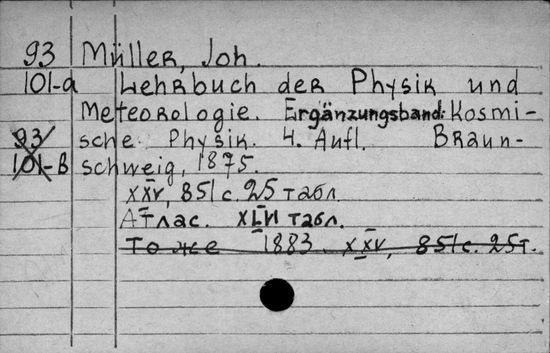 93 Müller, Joh.
101-a Lehrbuch der Physik und
Meteorologie. Ergänzungsband: Kosmi-
93 sche Physik. 4. Aufl. Braun-
101-B schweig, 1875.
XXV, 851 с. 25 табл.
Атлас. XLVI табл.
То же 1883. XXV, 851 с. 25 т.